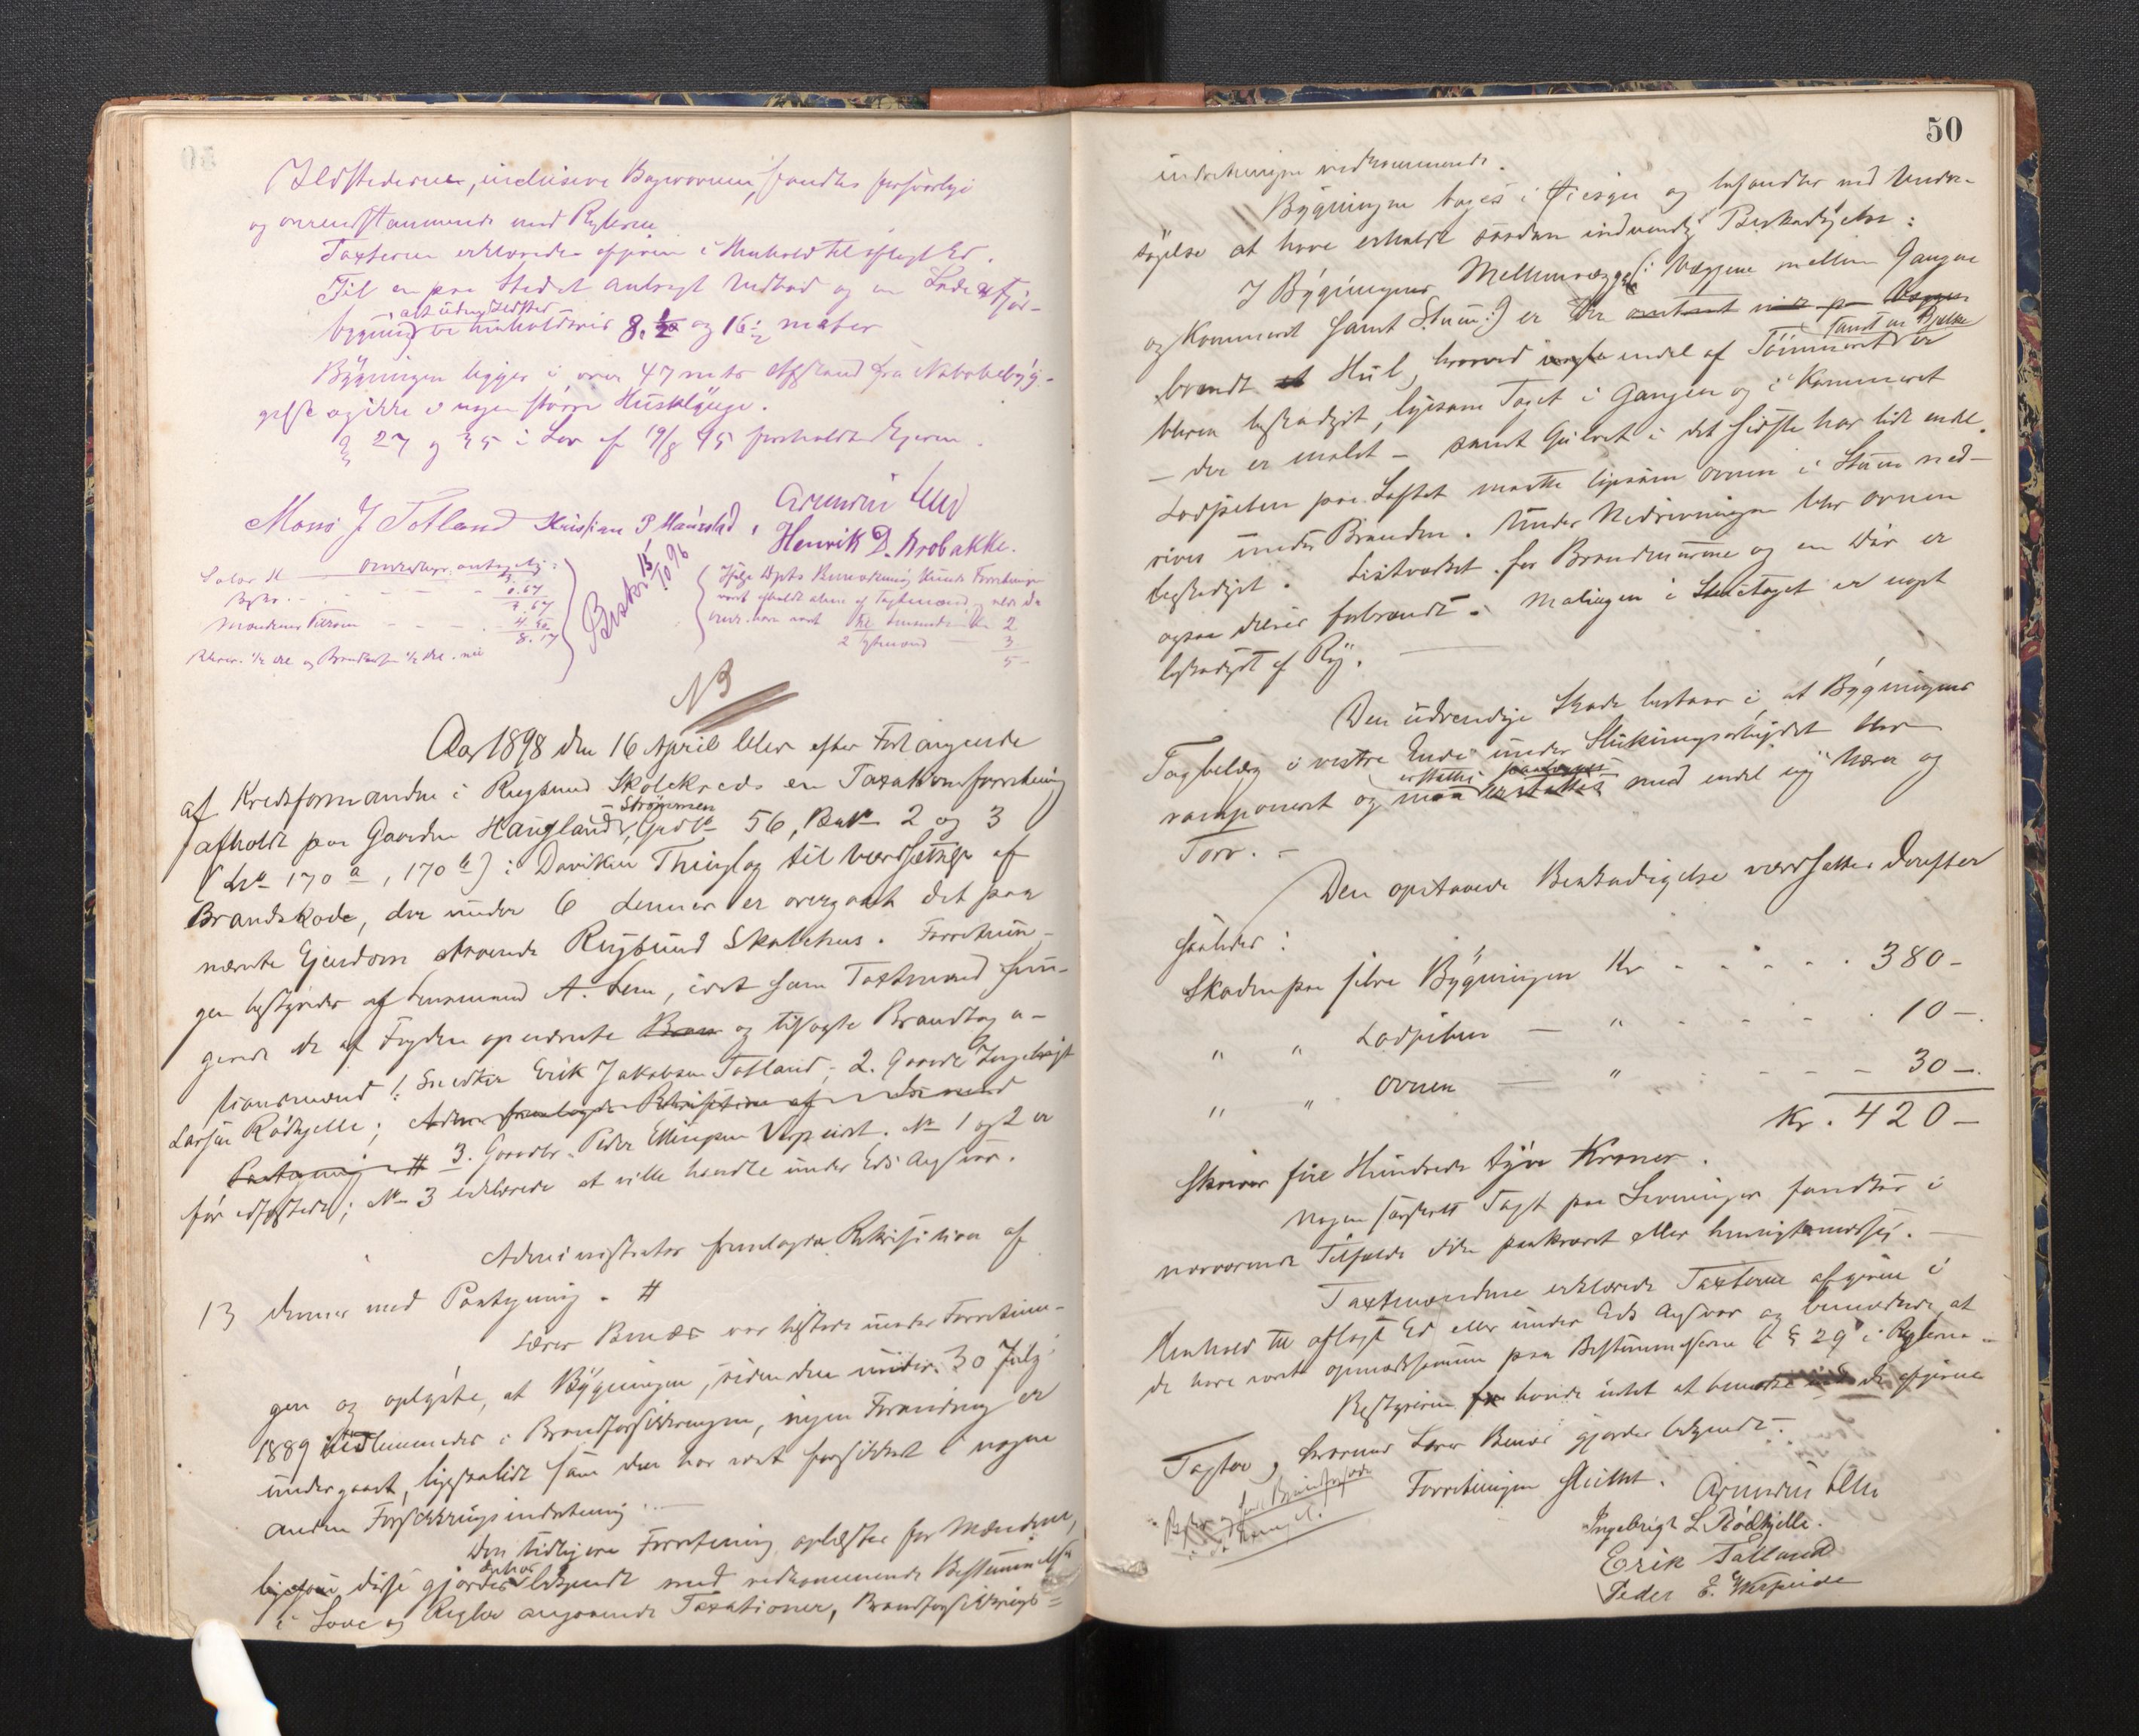 Ildstederne, inclusive Bagerovnen, fandtes forsvarlige
og overensstemmende med Reglerne
Taxterne erklæredes afgivne i Henhold til aflagt Ed.
Til en paa Stedet anbragt Vedbod og en Lade & Fjøs-
alt uden Ildsted
bygning er Afstanden 8 1/2 og 16 1/2 meter
Bygningen ligger i over 47 mtrs Afstand fra Nabobebyg-
gelse og ikke i nogen større Husklynge.
§ 27 og 35 i Lov af 19/8 45 foreholdt Ejeren.
Mons J Totland Kristian P Maurstad,
Henrik D. Krobakke.
Beskr 15/10 96
7.67
4.50
8.17
2
3
5 -
NB
Aar 1898 den 16 April blev efter Forlangende
af Kredsformanden i Rugsund Skolekreds en Taxationsforretning
- Strømmen
afholdt paa Gaarden Haugland, Grd No 56, Bno 2 og 3
(Lno 170 a, 170 b) i Daviken Thinglag til Værdsættelse af
Brandskade, der under 6 dennes er overgaaet det paa
nævnte Ejendom staaende Rugsund Skolehus. Forretnin-
gen bestyredes af Lensmand A. Lem, idet som Taxtmænd fun-
gerede de af Fogden opnævnte Bran og tilsagte Brandtaxa-
tionsmænd 1. Snedker Erik Jakobsen Totland; 2. Gaardbr Ingebrigt
Larsen Rødhjelle; Adm. fremlagde Rekvisition af med
Paategning # 3. Gaardbr. Peder Ellingsen Verpeide. No 1 og 2 er
før edfæstede; No 3 erklærede at ville handle under Eds Ansvar.
Administrator fremlagde Rekvisition af
13 dennes med Paategning. #
Lærer Benæs var tilstede under Forretnin-
gen og oplyste, at Bygningen, siden den under 30 July
1889 indlemmedes i Brandforsikringen, ingen Forandring er
undergaaet, ligesaalidt som den har været forsikret i nogen
anden Forsikringsindretning. —
Den tidligere Forretning oplæstes for Mændene,
ligesom disse gjordes bekjendt med vedkommende Bestemmelser
i Love og Regler angaaende Taxationer, Brandforsikrings-
50
indretningen vedkommende.
Bygningen toges i Øiesyn og befandtes ved Under-
søgelse at have erholdt saadan indvendig Beskadigelse:
I Bygningens Mellemvægge (: Væggene mellem Gangen
og Kammeret samt Stuen :) er der omtrent midt p Væggen
samt en Bjelke
brændt et Hul, hvorved endel af Tømmeret er
bleven beskadiget, ligesom Taget i Gangen og i Kammeret
— der er malet — samt Gulvet i det sidste har lidt endel.
Lodpiben paa Loftet maatte ligesom Ovnen i Stuen ned-
rives under Branden. Under Nedrivningen blev Ovnen
beskadiget. Listværket for Brandmurene og en Dør er
ogsaa delvis forbrændt. Malingen i Stuetaget er noget
beskadiget af Røg. —
Den udvendige Skade bestaar i, at Bygningens
Tagbelæg i vestre Ende under Slukningsarbeidet blev
erstattes
ramponeret og maa erstattes med endel ny Næver og
Torv. —
Den opstaaede Beskadigelse værdsattes derefter
saaledes:
Skaden paa selve Bygningen Kr - - - - 380 -
" " Lodpiben — " - - - - 10 -
" " Ovnen — " - - - - 30 -
Kr. 420 -
Skriver fire Hundrede tyve Kroner.
Nogen særskilt Taxt paa Levninger fandtes i
nærværende Tilfælde ikke paakrævet eller hensigtsmæssig. —
Taxtmændene erklærede Taxterne afgivne i
Henhold til aflagt Ed eller under Eds Ansvar og bemærkede, at
de have været opmærksomme paa Bestemmelserne i § 29 i Reglerne.
Bestyreren havde intet at bemærke ved de afgivne
Taxter, hvormed Lærer Benæs gjordes bekjendt.
Forretningen sluttet.
Ingebrigt L. Rödhjelle.
Erik Totland
Peder E. Werpeide